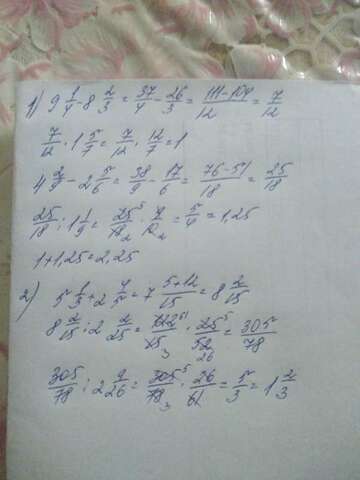 1) 9 1/4 - 8 2/3 = 37/4 - 26/3 = (111-104)/12 = 7/12
7/12 · 1 5/7 = 7/12 · 12/7 = 1
4 2/9 - 2 5/6 = 38/9 - 17/6 = (76-51)/18 = 25/18
25/18 : 1 1/9 = 25⁵/18₂ · 9/10₂ = 5/4 = 1,25
1+1,25=2,25
2) 5 1/3 + 2 4/5 = 7 (5+12)/15 = 8 2/15
8 2/15 : 2 2/25 = 122⁶¹/15₃ · 25⁵/52₂₆ = 305/78
305/78 : 2 9/26 = 305⁵/78₃ · 26/61 = 5/3 = 1 2/3